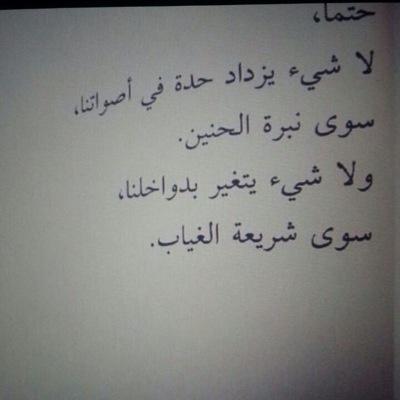 حتماً،
لا شيء يزداد حدة في أصواتنا،
سوى نبرة الحنين.
ولا شيء يتغير بدواخلنا،
سوى شريعة الغياب.